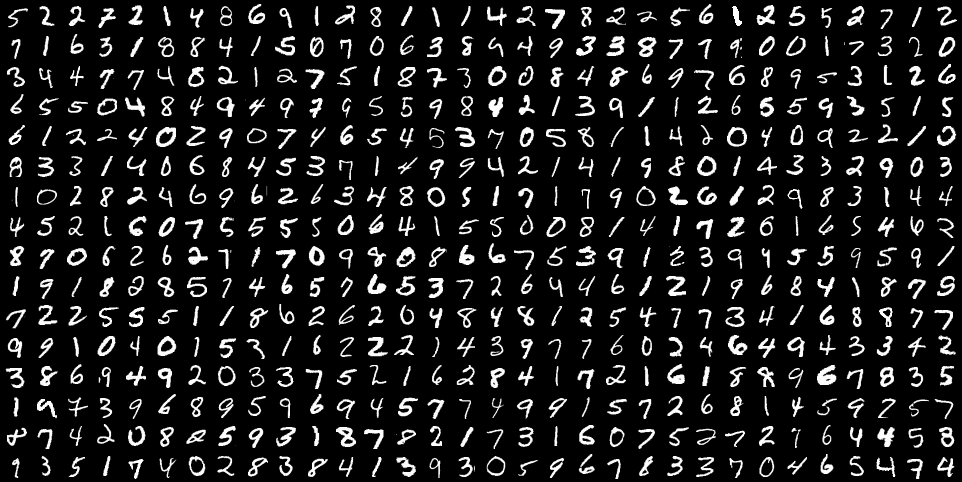 5 2 2 7 2 1 4 8 6 9 1 2 8 1 1 1 4 2 7 8 2 2 5 6 1 2 5 5 2 7 1 2
7 1 6 3 1 8 8 4 1 5 0 7 0 6 3 8 9 4 9 3 3 8 7 7 9 0 0 1 7 3 2 0
3 4 4 7 7 4 8 2 1 2 7 5 1 8 7 3 0 0 8 4 8 6 9 7 6 8 9 5 3 1 2 6
6 5 5 0 4 8 4 9 4 9 7 9 5 5 9 8 4 2 1 3 9 1 1 2 6 5 5 9 3 5 1 5
6 1 2 2 4 0 2 9 0 7 4 6 5 4 5 3 7 0 5 8 1 1 4 2 0 4 0 9 2 2 1 0
8 3 3 1 4 0 6 8 4 5 3 7 1 4 9 9 4 2 1 4 1 9 8 0 1 4 3 3 2 9 0 3
1 0 2 8 2 4 6 9 6 2 6 3 4 8 0 5 1 7 1 7 9 0 2 6 1 2 9 8 3 1 4 4
4 5 2 1 6 0 7 5 5 5 5 0 6 4 1 5 5 0 0 8 1 4 1 7 2 6 1 6 5 4 6 2
8 7 0 6 2 6 2 7 1 7 0 9 8 0 8 6 6 7 5 3 9 1 2 3 9 4 5 5 9 5 9 1
1 9 1 8 2 8 5 7 4 6 5 7 6 5 3 7 2 6 4 4 6 1 2 1 9 6 8 4 1 8 7 5
7 2 2 5 5 5 1 1 8 6 2 6 2 0 4 8 4 8 1 2 5 4 7 7 3 4 1 6 8 8 7 7
9 9 1 0 4 0 1 5 3 1 6 2 2 2 1 4 3 9 7 7 6 0 2 4 6 4 9 4 3 3 4 2
3 8 6 9 4 9 2 0 3 3 7 5 2 1 6 2 8 4 1 7 2 1 6 1 8 8 9 6 7 8 3 5
1 9 7 3 9 6 8 9 5 9 6 9 4 5 7 7 4 9 9 1 5 7 2 6 8 1 4 5 9 7 5 7
8 7 4 2 0 8 2 5 9 3 1 8 7 8 2 1 7 3 1 6 0 7 5 2 7 2 7 6 4 4 5 8
9 3 5 1 7 4 0 2 8 3 8 4 1 3 9 3 0 5 9 6 7 8 3 3 7 0 4 6 5 4 7 4